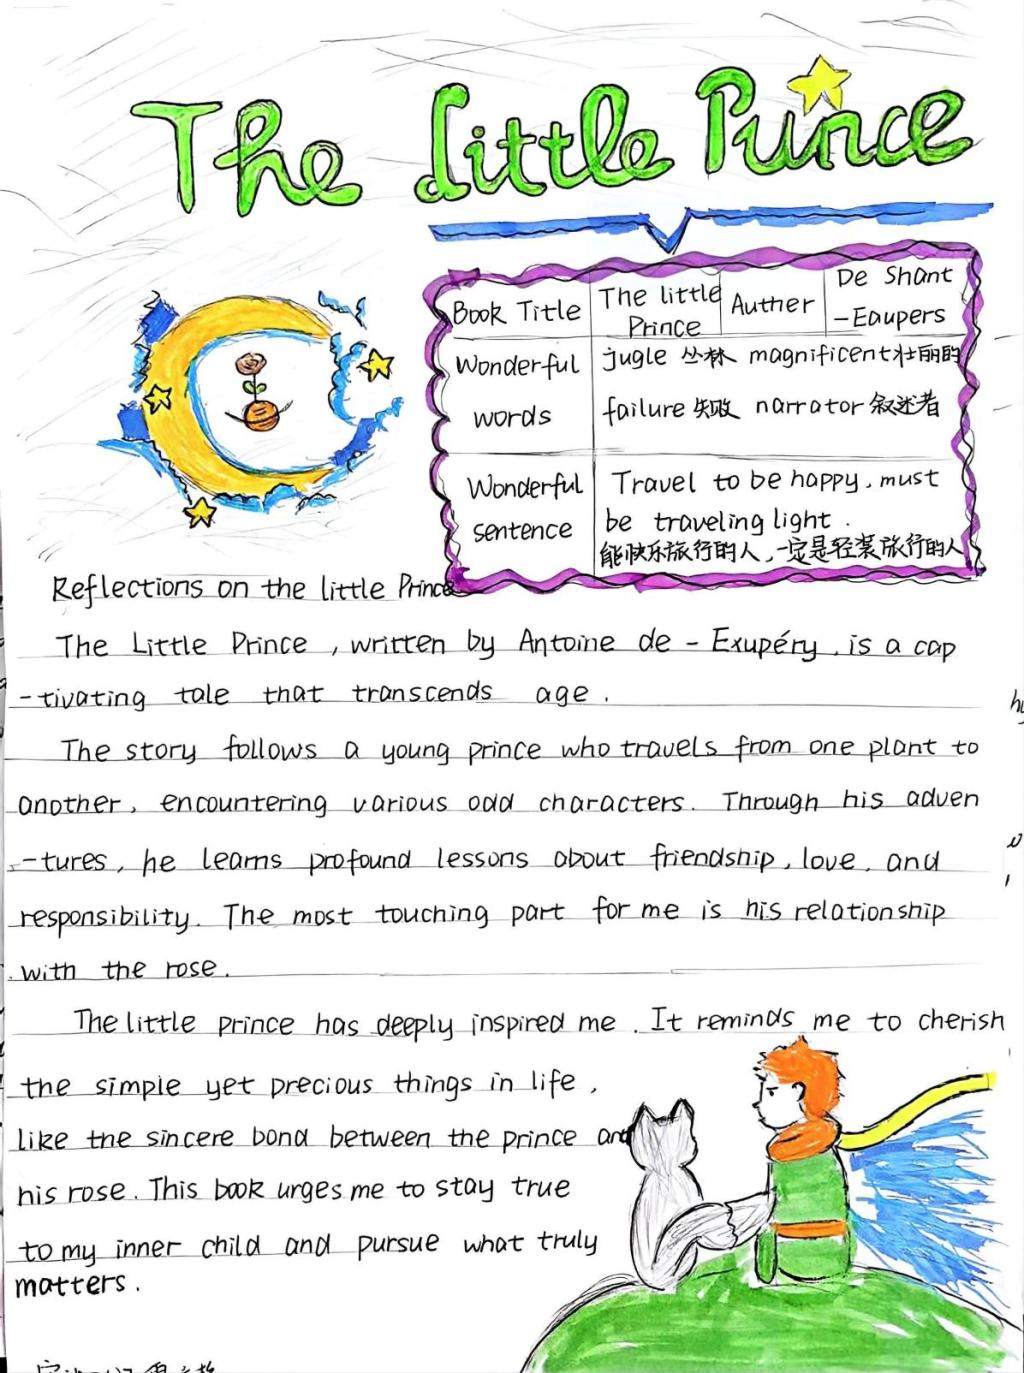 The Little Prince
Book Title
The little
Prince
Auther
De Shant
-Eaupers
Wonderful
words
jugle 丛林 magnificent壮丽的
failure 失败 narrator 叙述者
Wonderful
sentence
Travel to be happy, must
be traveling light.
能快乐旅行的人,一定是轻装旅行的人
Reflections on the little Prince
The Little Prince, written by Antoine de-Exupéry, is a cap
-tivating tale that transcends age.
The story follows a young prince who travels from one plant to
another, encountering various odd characters. Through his adven
-tures, he learns profound lessons about friendship, love, and
responsibility. The most touching part for me is his relationship
with the rose.
The little prince has deeply inspired me. It reminds me to cherish
the simple yet precious things in life,
like the sincere bond between the prince and
his rose. This book urges me to stay true
to my inner child and pursue what truly
matters.